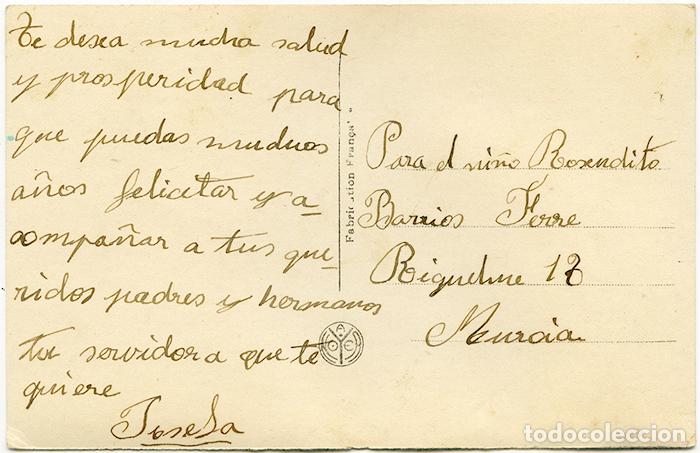 te desea mucha salud
y prosperidad para
que puedas muchos
años felicitar y a-
compañar a tus que-
ridos padres y hermanos
tu servidora que te
quiere
Fabrication Française
Para el niño Rosendito
Barrios Ferre
Riquelme 12
Murcia
todocoleccion